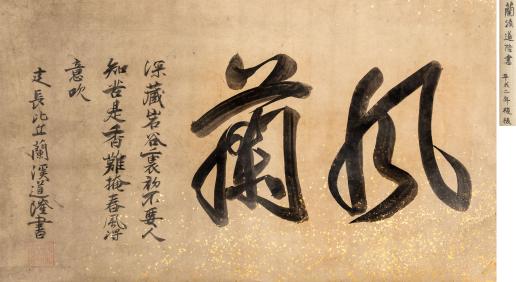 蘭渓道隆書 平成二年
風蘭
深藏岩谷裏初不要人
知苦是香難掩春風得
意吹
建長比丘蘭溪道隆書